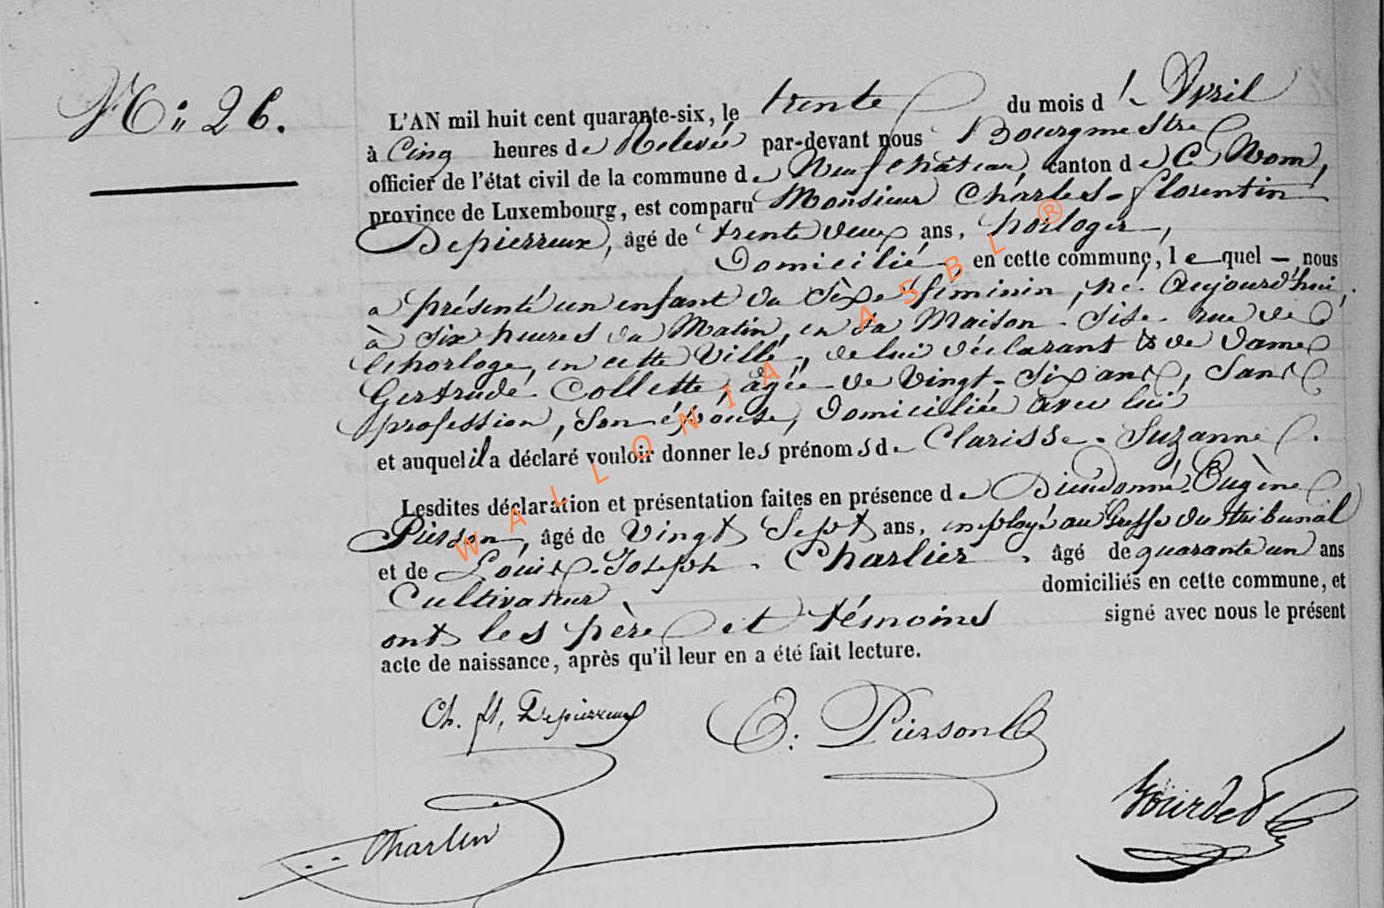 N° 26.
L'AN mil huit cent quarante-six, le trente du mois d'Avril
à Cinq heures de Relevée par-devant nous Bourgmestre
officier de l'état civil de la commune de Neufchâteau, canton de Ce Nom,
province de Luxembourg, est comparu Monsieur Charles-florentin
Depierreux, âgé de trente deux ans, horloger,
Domicilié en cette commune, lequel — nous
a présenté un enfant du Sèxe féminin, né Aujourd'hui,
à Six heures du Matin, en sa Maison Sise rue de
l'horloge, en cette Ville, de lui déclarant & de Dame
Gertrude Collette, agée de Vingt-Six ans, Sans
profession, Son épouse, Domiciliée avec lui
et auquel il a déclaré vouloir donner les prénoms de Clarisse-Suzanne.
Lesdites déclaration et présentation faites en présence de Dieudonné-Eugène
Pierson, âgé de Vingt Sept ans, employé au Greffe du tribunal
et de Louis-Joseph Charlier, âgé de quarante un ans
Cultivateur domiciliés en cette commune, et
ont les père et témoins signé avec nous le présent
acte de naissance, après qu'il leur en a été fait lecture.
Ch. fl. Depierreux
E. Pierson
Charlier
WALLONIA ASBL ®